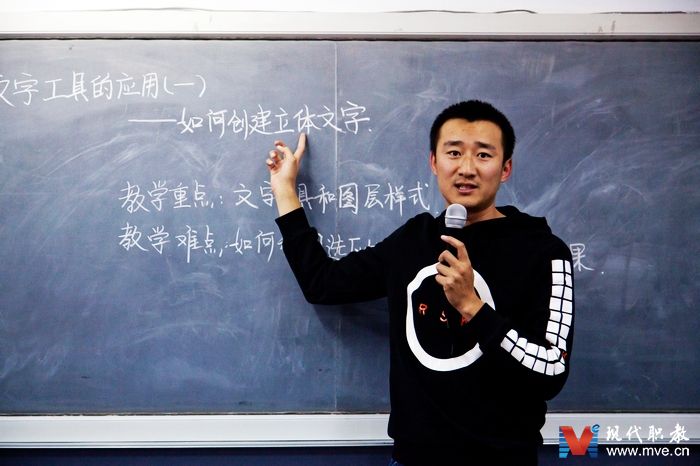 文字工具的应用(一)
——如何创建立体文字.
教学重点:文字 具和图层样式
教学难点:如何 选 果.
现代职教
www.mve.cn